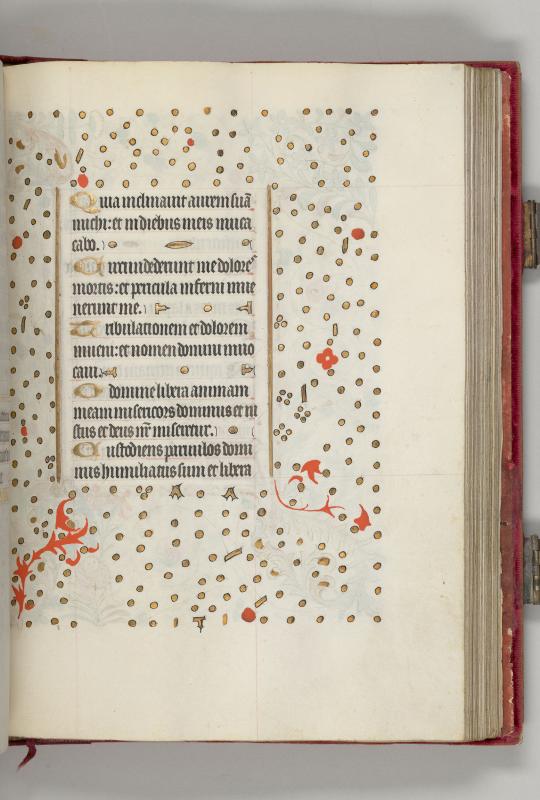 Quia inclinavit aurem suã
michi: et in diebus meis invoca
cabo.
Circundederunt me dolore
mortis: et pericula inferni inve
nerunt me.
Tribulationem et dolorem
inveni: et nomen domini invo
cavi
O domine libera animam
meam misericors dominus et iu
stus et deus nr̃ miseretur.
Custodiens parvulos domi
nus humiliatus sum et libera